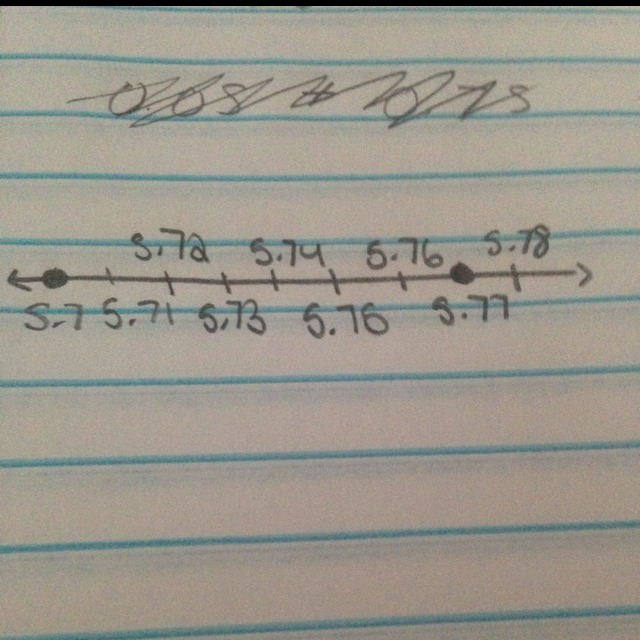 5.72 5.74 5.76 5.78
5.7 5.71 5.73 5.75 5.77